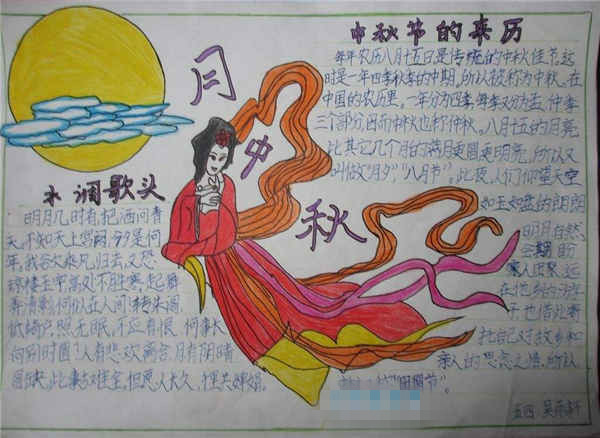 中秋节的来历
每年农历八月十五日是传统的中秋佳节。这
时是一年四季秋季的中期，所以被称为中秋。在
中国的农历里，一年分为四季，每季又分为孟、仲、季
三个部分，因而中秋也称仲秋。八月十五的月亮
比其它几个月的满月更圆更明亮，所以又
叫做"月夕"，"八月节"。此夜，人们仰望天空
如玉如盘的朗朗
明月，自然
会期盼
家人团聚。远
在他乡的游
子，也借此寄
托自己对故乡和
亲人的思念之情。所以
"团圆节"。
月
中
秋
水调歌头
明月几时有，把酒问青
天。不知天上宫阙，今夕是何
年。我欲乘风归去，又恐
琼楼玉宇，高处不胜寒。起舞
弄清影，何似在人间！转朱阁，
低绮户，照无眠。不应有恨，何事长
向别时圆？人有悲欢离合，月有阴晴
圆缺，此事古难全。但愿人长久，
五四